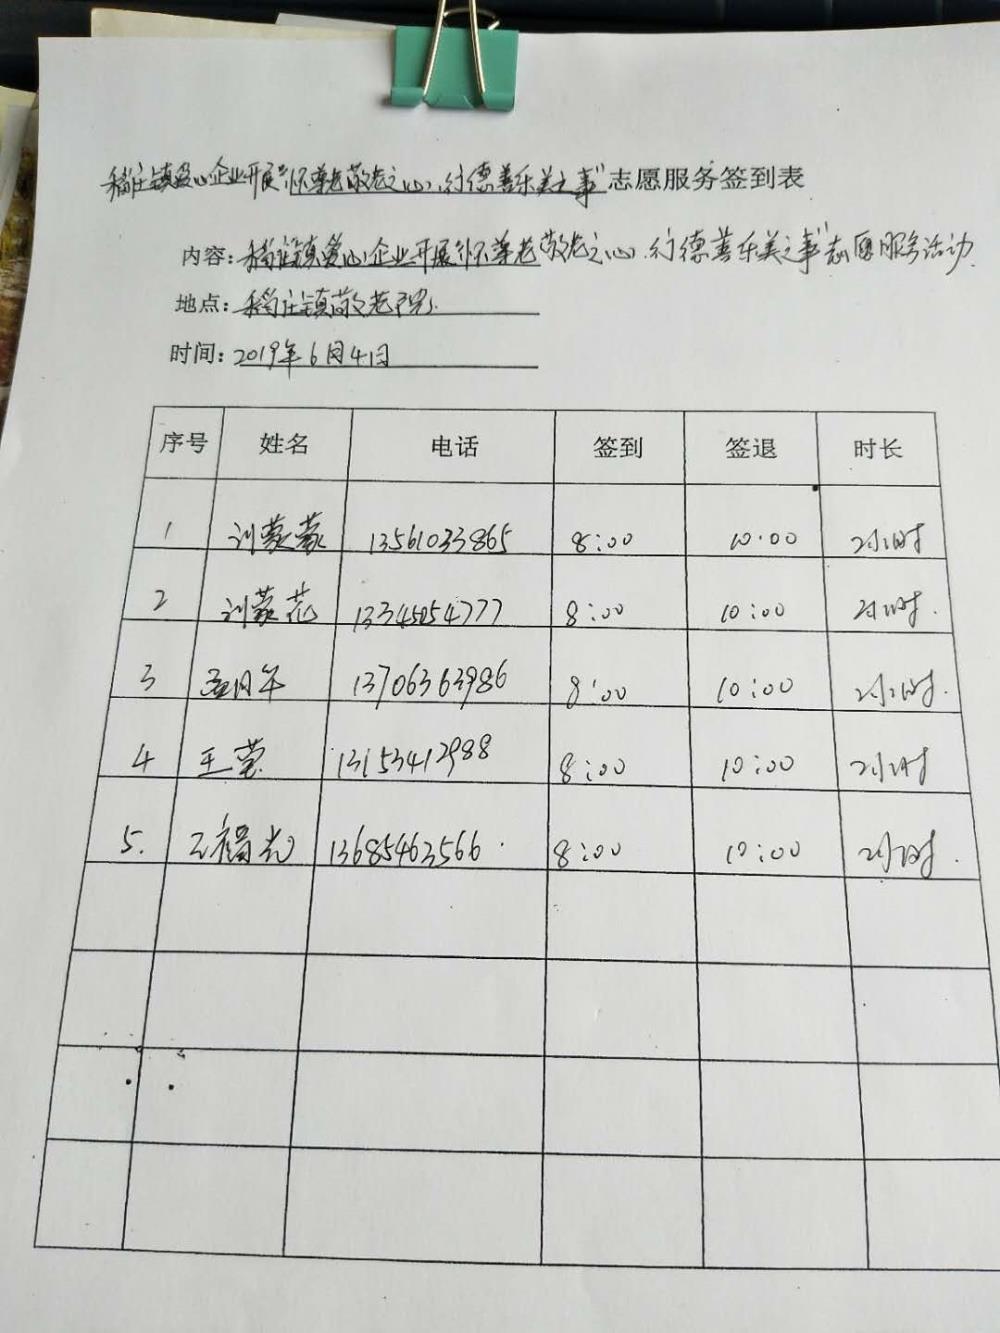 稻庄镇爱心企业开展“怀尊老敬老之心、行德善乐美之事”志愿服务签到表
内容：稻庄镇爱心企业开展“怀尊老敬老之心、行德善乐美之事”志愿服务活动
地点：稻庄镇敬老院
时间：2019年6月4日
序号 姓名 电话 签到 签退 时长
1 刘蒙蒙 13561033865 8:00 10:00 2小时
2 刘蒙花 13345054777 8:00 10:00 2小时.
3 13706363986 8:00 10:00 2小时.
4 王莹 13153412988 8:00 10:00 2小时
5. 王福光 13685463566 8:00 10:00 2小时.